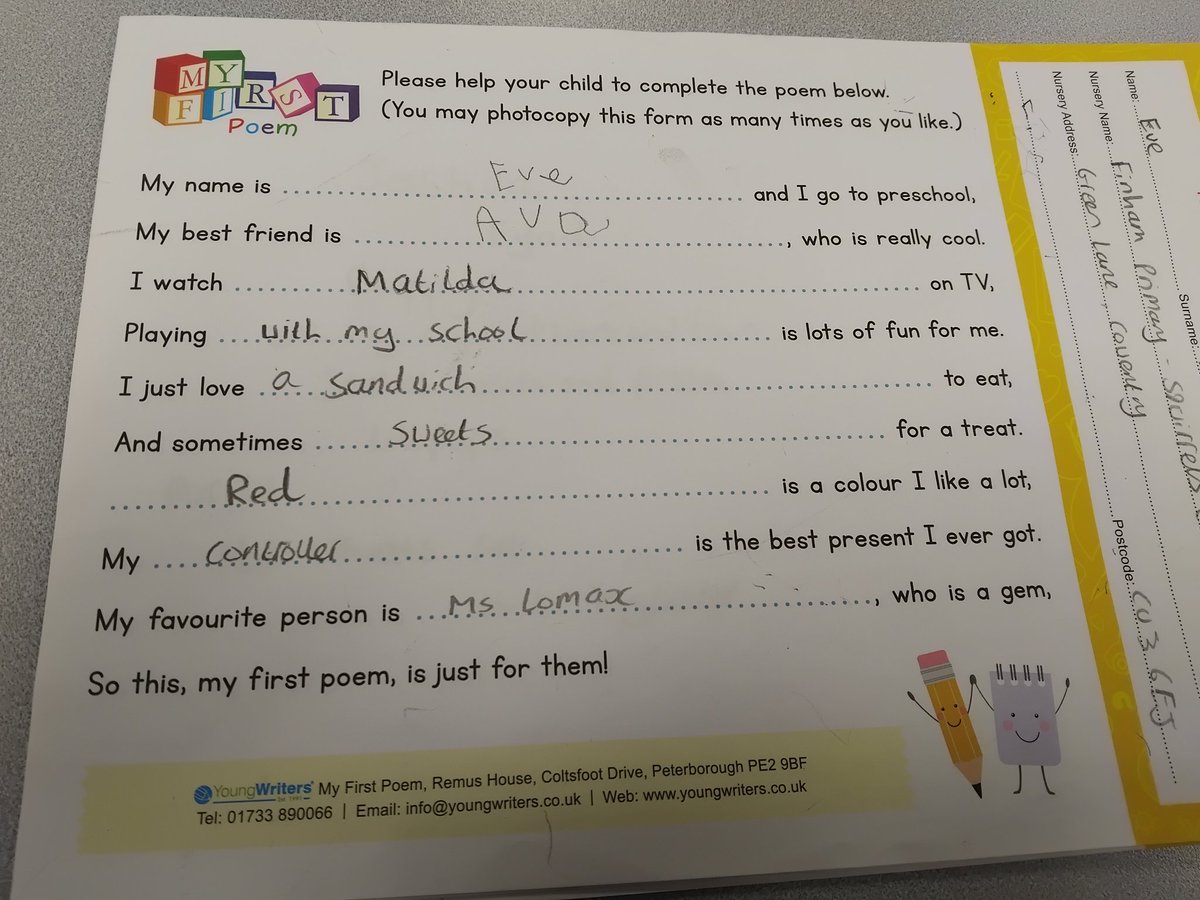 MY FIRST Poem
Please help your child to complete the poem below.
(You may photocopy this form as many times as you like.)
My name is Eve and I go to preschool,
My best friend is AVa, who is really cool.
I watch Matilda on TV,
Playing with my school is lots of fun for me.
I just love a sandwich to eat,
And sometimes Sweets for a treat.
Red is a colour I like a lot,
My controller is the best present I ever got.
My favourite person is Ms Lomax, who is a gem,
So this, my first poem, is just for them!
YoungWriters Est. 1991 My First Poem, Remus House, Coltsfoot Drive, Peterborough PE2 9BF
Tel: 01733 890066 | Email: info@youngwriters.co.uk | Web: www.youngwriters.co.uk
Name: Eve Surname:
Nursery Name: Finham Primary - Squirrels
Nursery Address: Green Lane, Coventry
Postcode: CV3 6EJ